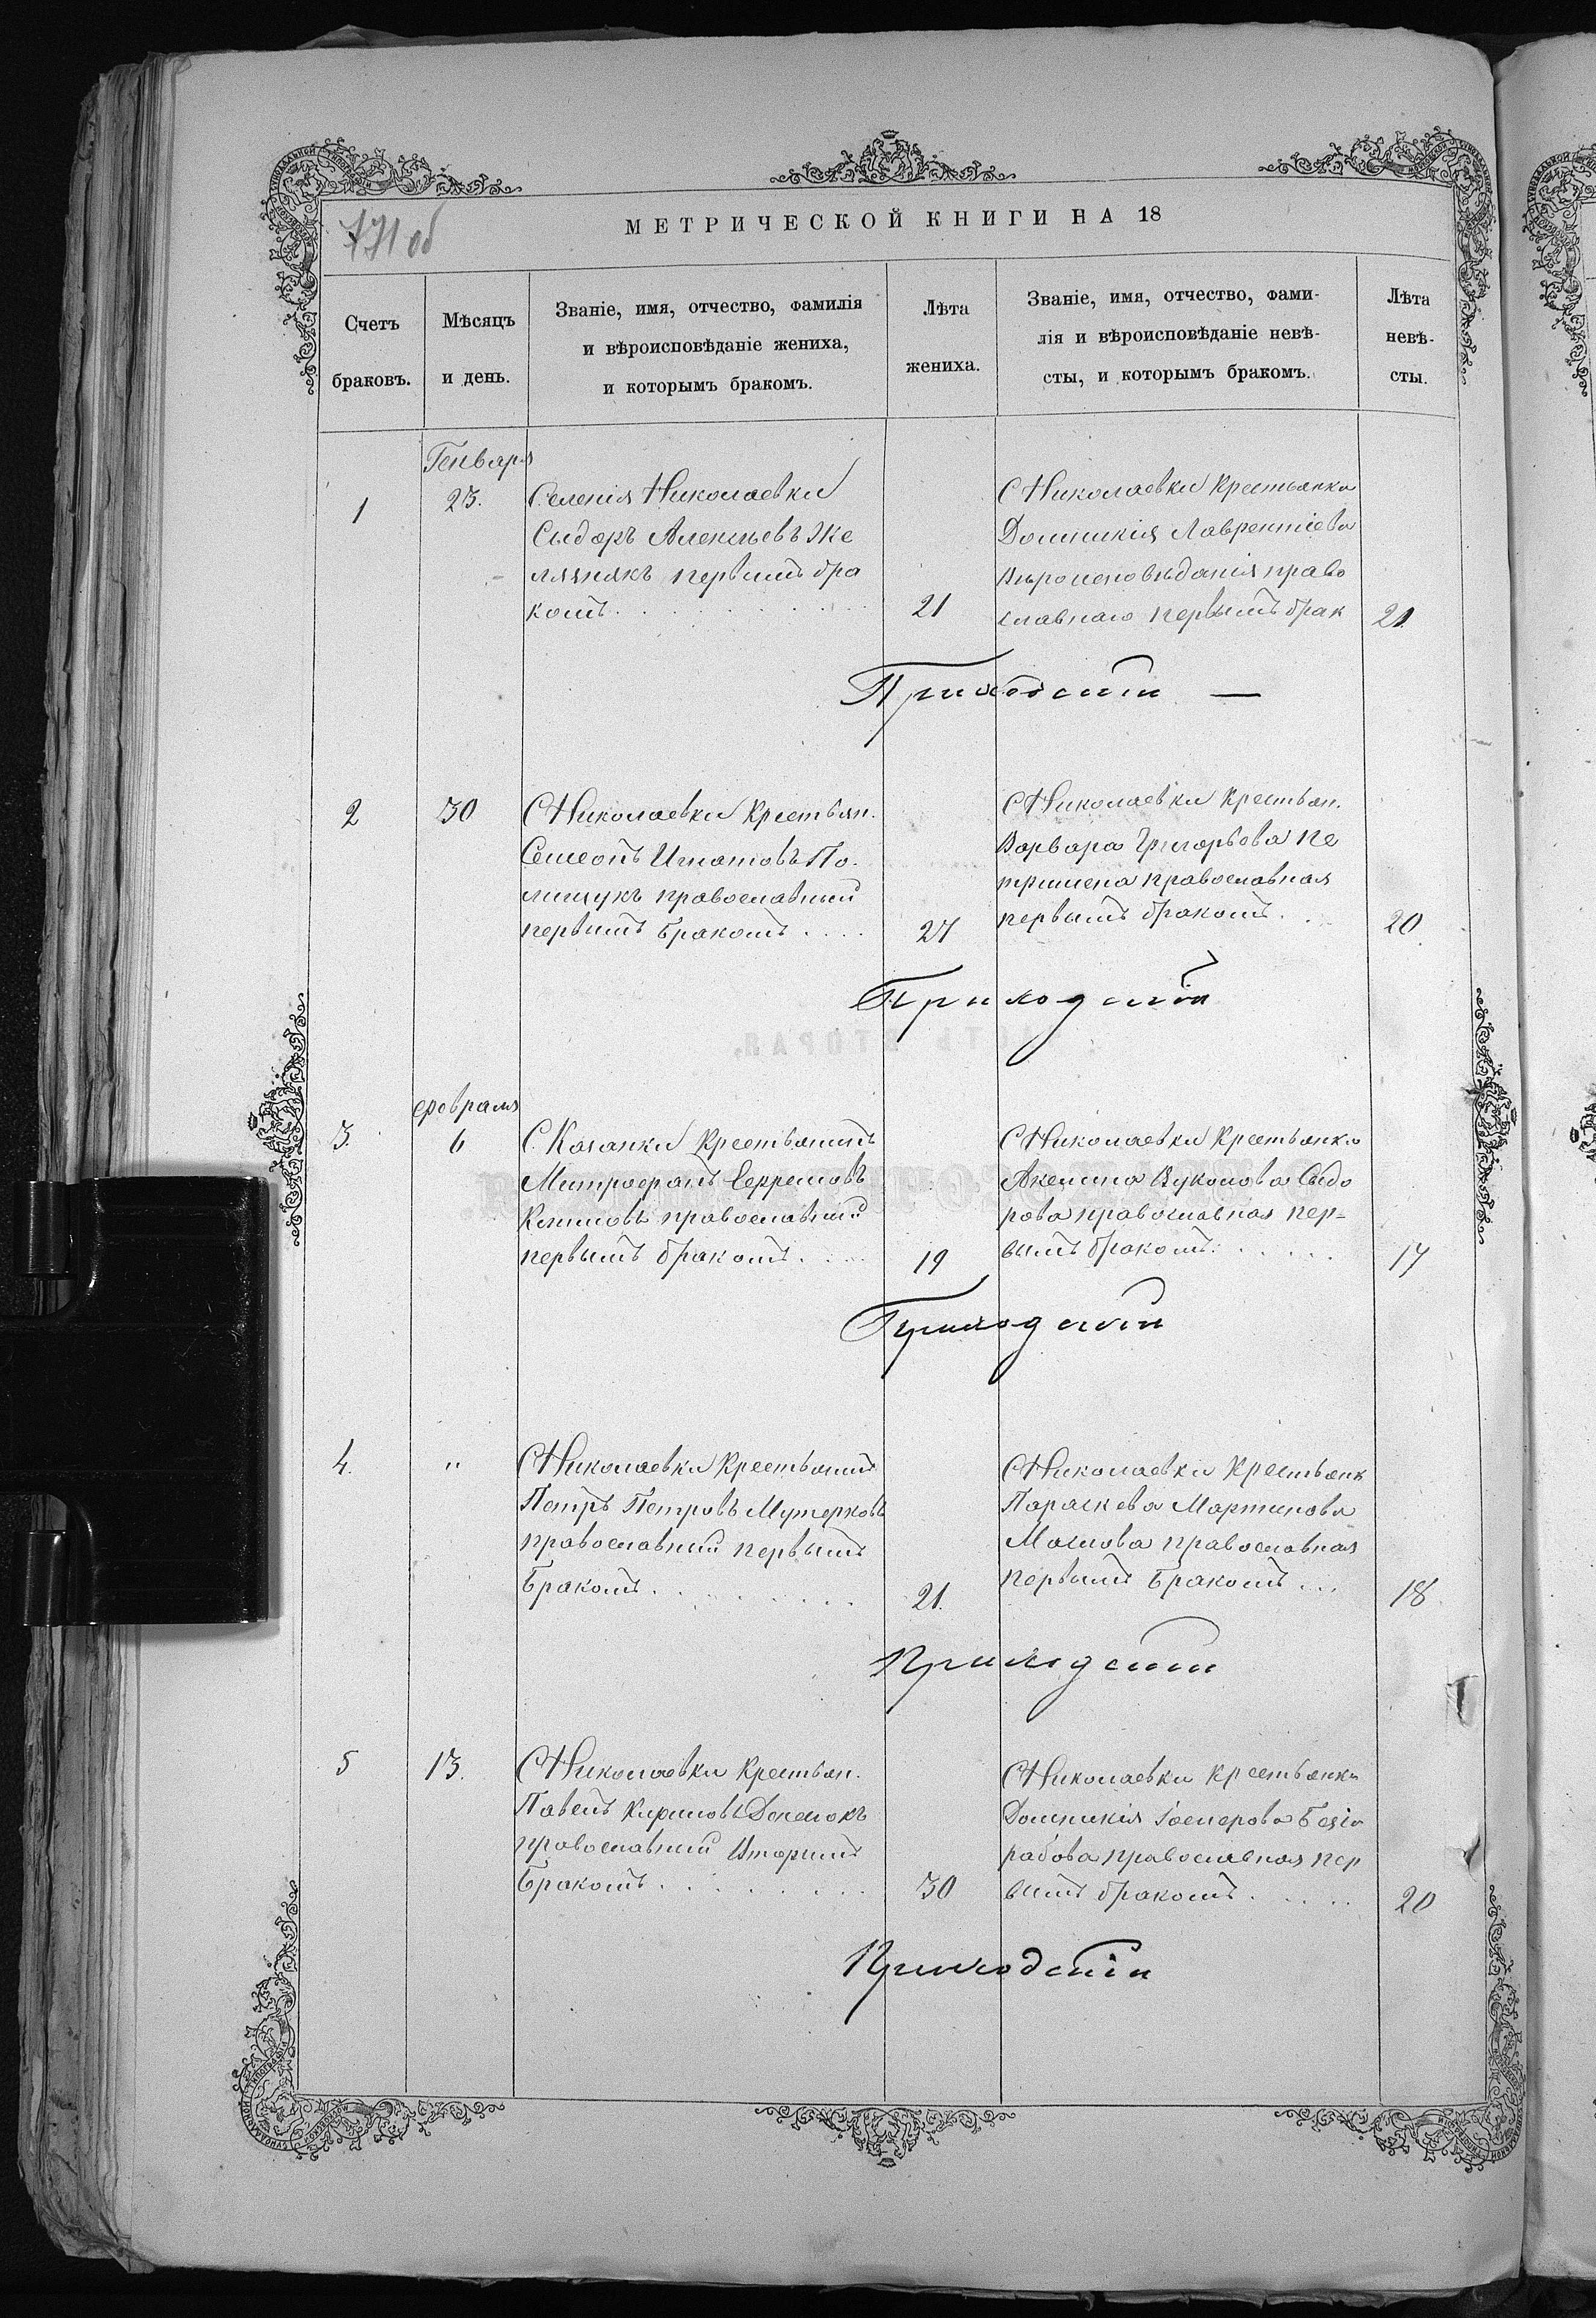 771 об
МЕТРИЧЕСКОЙ КНИГИ НА 18
Счетъ браковъ.
Мѣсяцъ и день.
Званіе, имя, отчество, фамилія
и вѣроисповѣданіе жениха,
и которымъ бракомъ.
Лѣта
жениха.
Званіе, имя, отчество, фами-
лія и вѣроисповѣданіе невѣ-
сты, и которымъ бракомъ.
Лѣта
невѣ-
сты.
Генваря
1
23.
Селенія Николаевки
Сыдоръ Алексѣевъ Же
лязнякъ первымъ бра
комъ
21
С Николаевки Крестьянка
Домникія Лаврентіева
Вѣроисповѣданія право
славнаго первымъ брак
21.
2
30
С Николаевки Крестьян.
Семеонъ Игнатовъ По-
лищукъ православный
первымъ бракомъ
27
С Николаевки Крестьян.
Варвара Григорьева Пе
православная
первымъ бракомъ
20.
Февраля
3.
6
С. Крестьянинъ
Митрофанъ
православный
первымъ бракомъ
19
С Николаевки Крестьянка
Сидо
рова православная пер-
вымъ бракомъ
17
4.
"
С Николаевки Крестьянинъ
Петръ Петровъ
православный первымъ
бракомъ
21.
С Николаевки Крестьянк
Параскева Мартинова
православная
первымъ бракомъ
18
5
13.
С Николаевки Крестьян.
Павелъ Кириловъ
православный вторымъ
бракомъ
30
С Николаевки Крестьянка
Домникія
православная пер
вымъ бракомъ
20